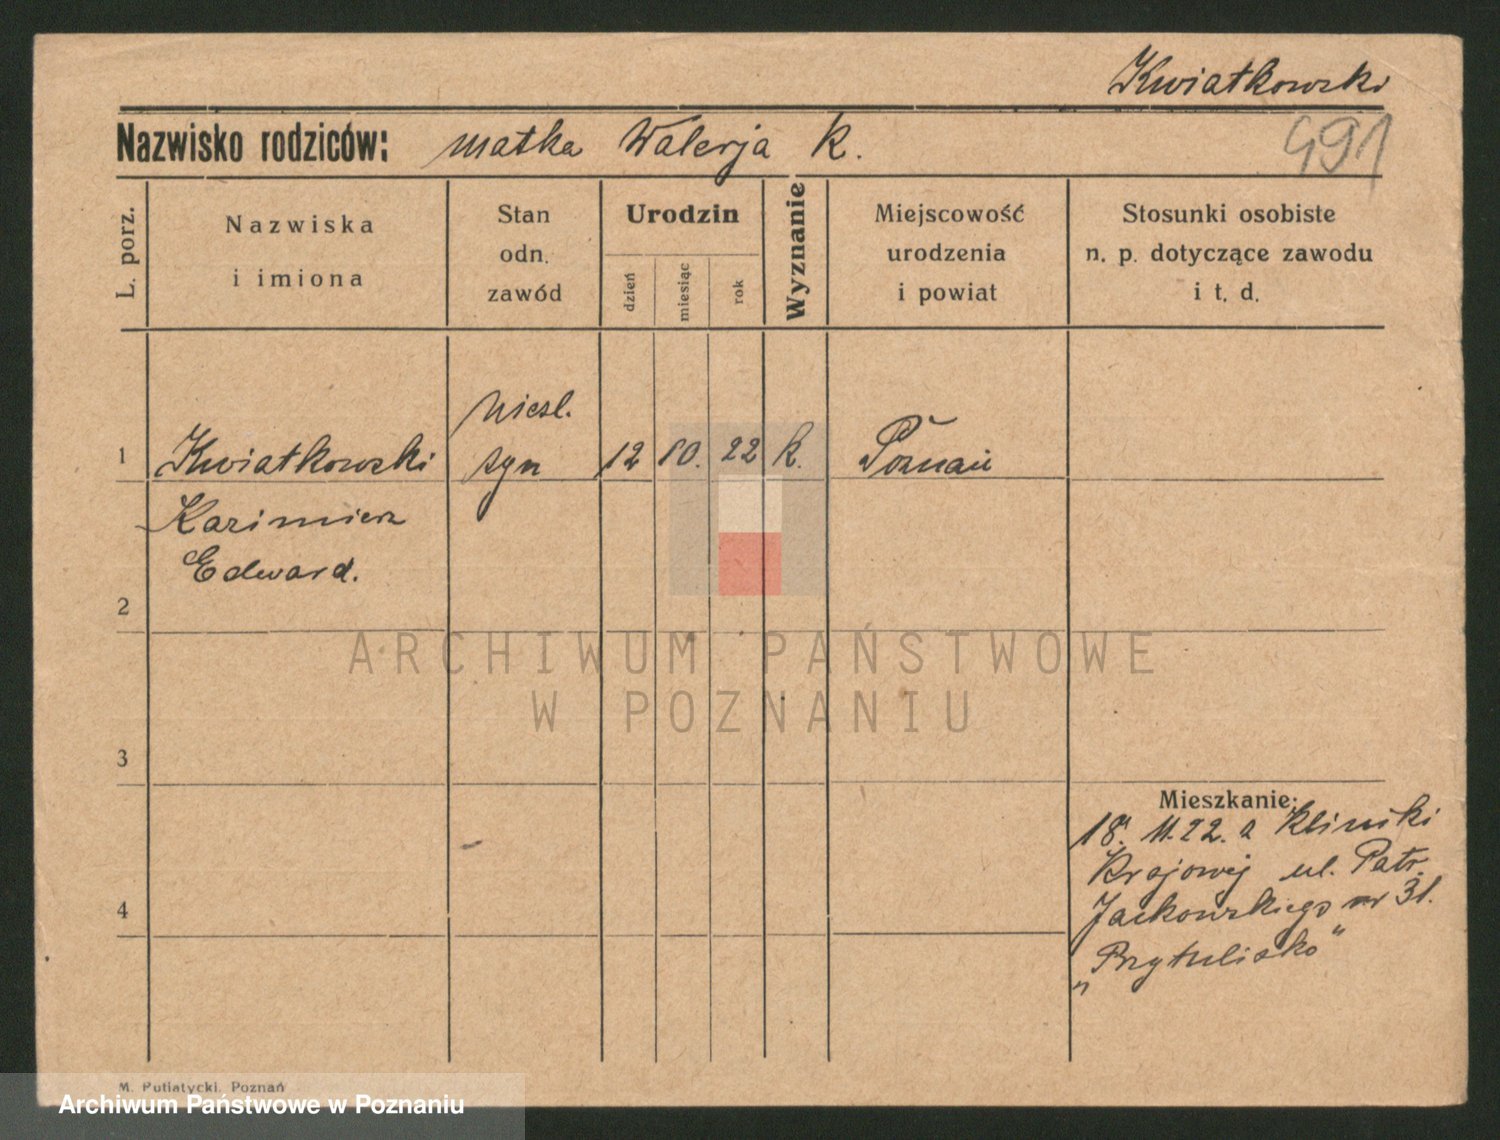 Kwiatkowski
Nazwisko rodziców: matka Walerja K.
491
L. porz.
Nazwiska
i imiona
Stan
odn.
zawód
Urodzin
dzień
miesiąc
rok
Wyznanie
Miejscowość
urodzenia
i powiat
Stosunki osobiste
n. p. dotyczące zawodu
i t. d.
niesl.
1 Kwiatkowski syn 12 10. 22 k. Poznań
Kazimierz
Edward.
2
ARCHIWUM PAŃSTWOWE
W POZNANIU
3
Mieszkanie:
18. 11. 22. z Kliniki
Krajowej ul. Patr.
Jackowskiego nr 31.
„Przytulisko"
4
M. Putiatycki, Poznań
Archiwum Państwowe w Poznaniu